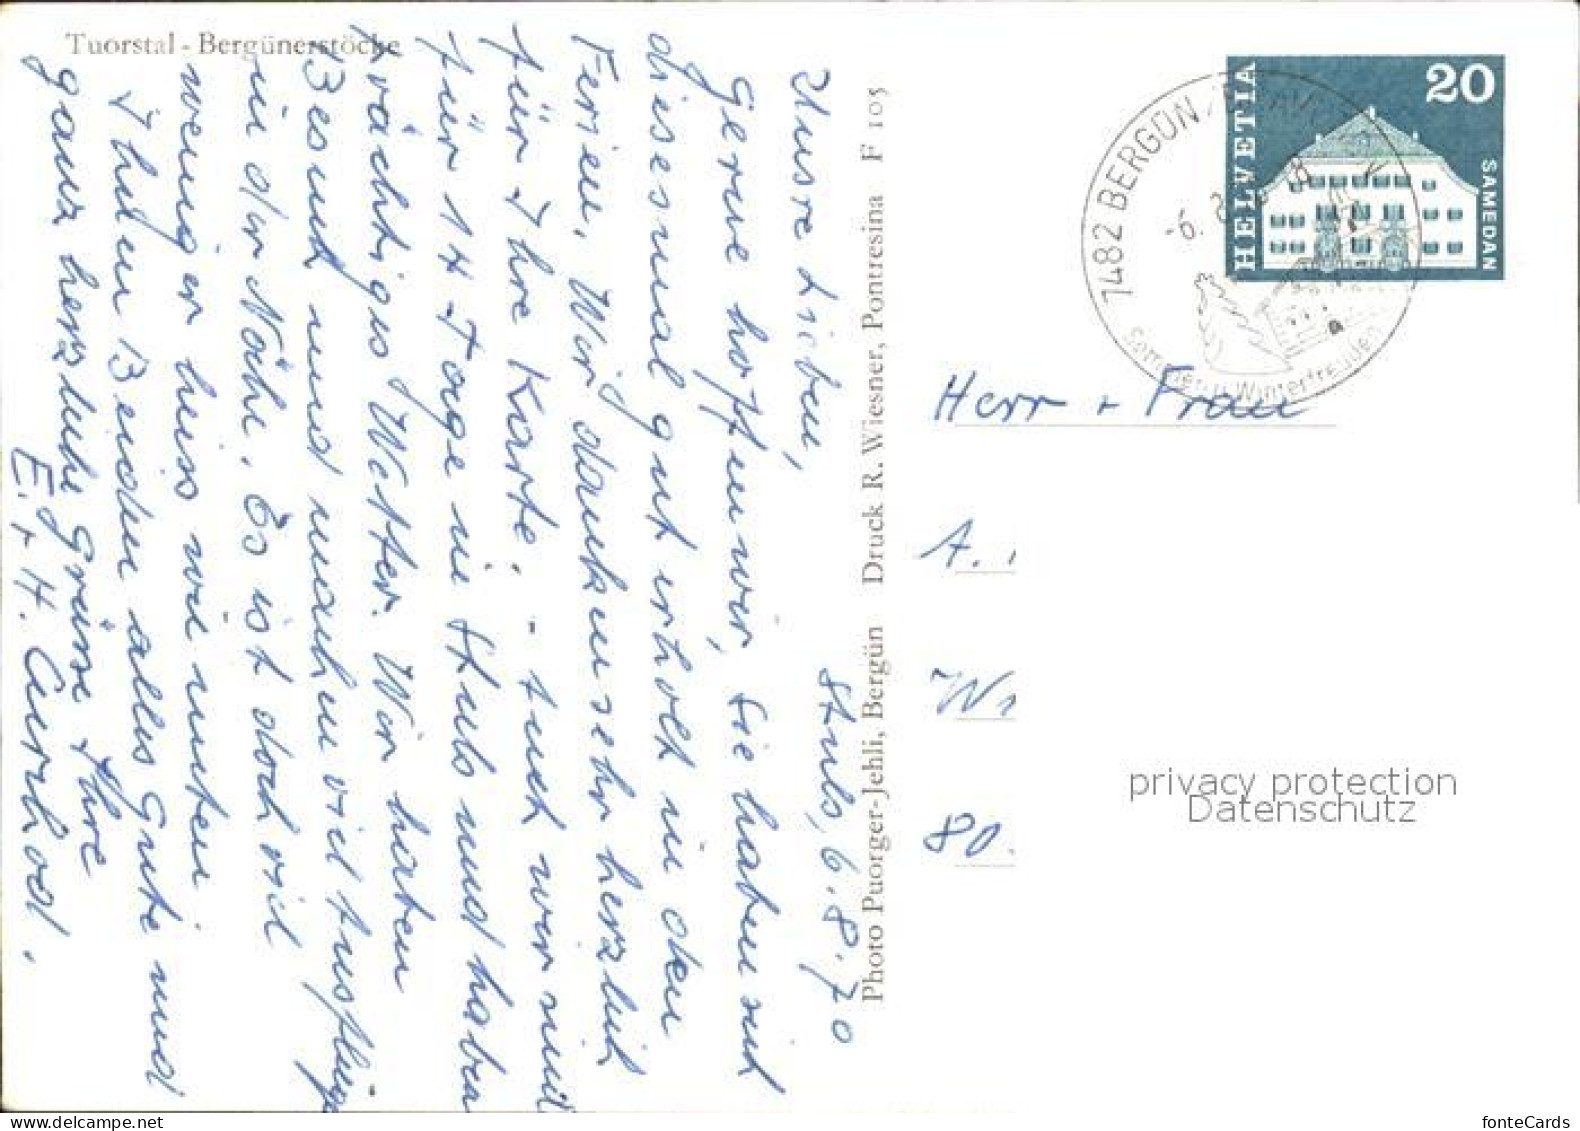 Tuorstal - Bergünerstöcke
Stuls, 6.8.70
Unsre Lieben,
gerne hoffen wir, Sie haben sich
diesesmal gut erholt in den
Ferien. Wir danken sehr herzlich
für Ihre Karte. - Auch wir sind
für 14 Tage in Stuls und haben
prächtiges Wetter. Wir hatten
Besuch und machen viel Ausflüge
in der Nähe. Es ist doch viel
weniger heiss wie unten.
Ihnen Beiden alles Gute und
ganz herzliche Grüsse Ihre
E. + H.
Photo Puorger-Jehli, Bergün Druck R. Wiesner, Pontresina F 105
HELVETIA
20
SAMEDAN
7482 BERGÜN
-6. 8
Sommer- u. Winterfreuden
Herr + Frau
A.
80.
privacy protection
Datenschutz
fonteCards